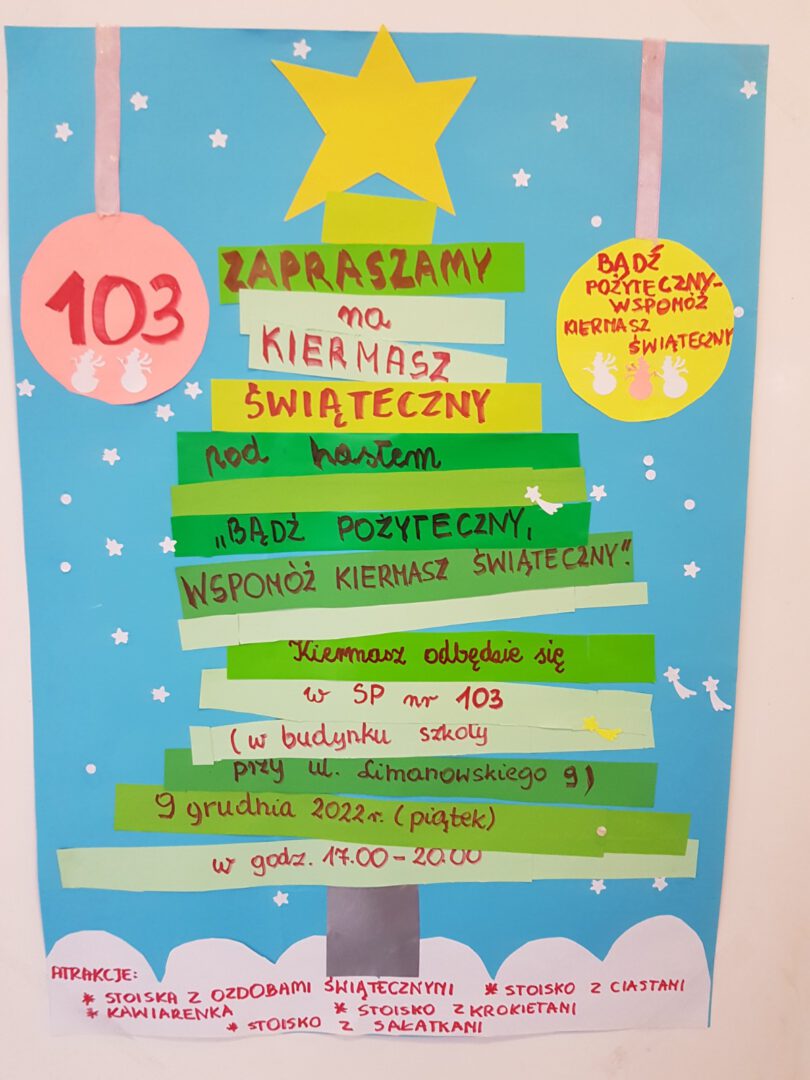 103
BĄDŹ
POŻYTECZNY-
WSPOMÓŻ
KIERMASZ
ŚWIĄTECZNY
ZAPRASZAMY
na
KIERMASZ
ŚWIĄTECZNY
pod hasłem
„BĄDŹ POŻYTECZNY,
WSPOMÓŻ KIERMASZ ŚWIĄTECZNY".
Kiermasz odbędzie się
w SP nr 103
(w budynku szkoły
przy ul. Limanowskiego 9)
9 grudnia 2022r. (piątek)
w godz. 17.00-20.00
ATRAKCJE:
* STOISKA Z OZDOBAMI ŚWIĄTECZNYMI * STOISKO Z CIASTAMI
* KAWIARENKA * STOISKO Z KROKIETAMI
* STOISKO Z SAŁATKAMI